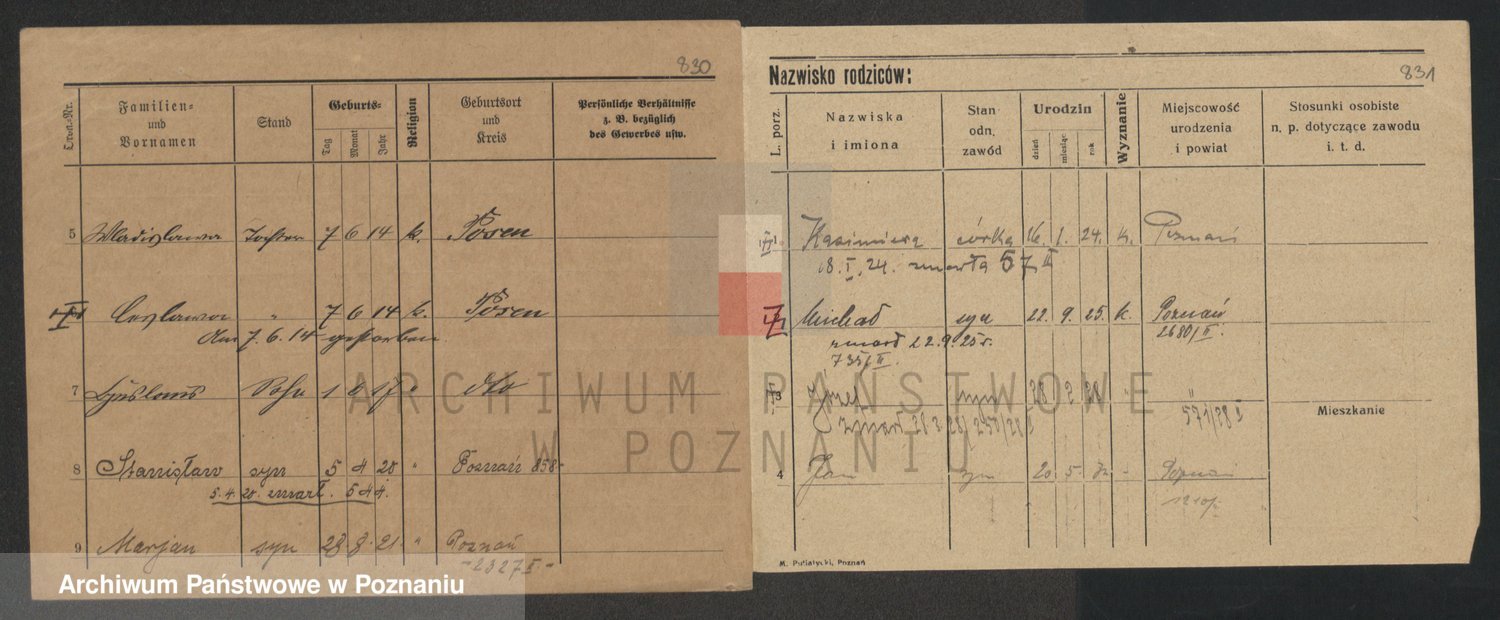 830
Familien=
und
Vornamen
Stand
Geburts=
Tag
Monat
Jahr
Religion
Geburtsort
und
Kreis
Persönliche Verhältnisse
z. B. bezüglich
des Gewerbes usw.
5 Wladislawa Tochter 7 6 14 k. Posen
Ceslawa " 7 6 14 k. Posen
Am 7.6.14 gestorben.
7 Sohn 1 6 17 " dto
8 Stanisław syn 5 4 20 " Poznań 858-
5.4.20. zmarł. 544.
9 Marjan syn 28 8. 21. " Poznań
-2327 II-
831
Nazwisko rodziców:
L. porz.
Nazwiska
i imiona
Stan
odn.
zawód
Urodzin
dzień
miesiąc
rok
Wyznanie
Miejscowość
urodzenia
i powiat
Stosunki osobiste
n. p. dotyczące zawodu
i. t. d.
Kazimiera córka 16. 1. 24. k. Poznań
18. I. 24. zmarła 57 II
Michał syn 22. 9. 25. k. Poznań
2680/II.
zmarł 22.9.25 r.
735/II.
3 Józef syn 28 2 28 "
571/28 II
zmarł
Mieszkanie
4 Jan syn 20. 5. Poznań
M. Putiatycki, Poznań
ARCHIWUM PAŃSTWOWE
W POZNANIU
Archiwum Państwowe w Poznaniu